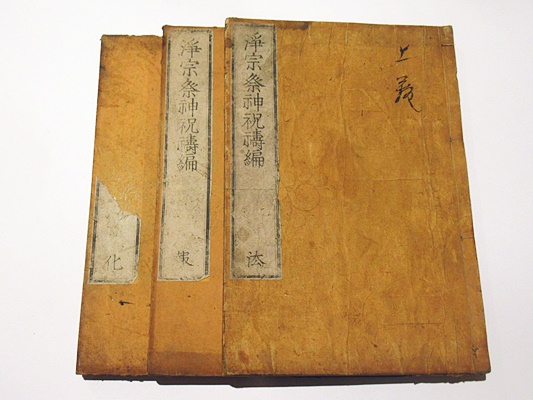 上
淨宗祭神祝禱編
法
淨宗祭神祝禱編
化